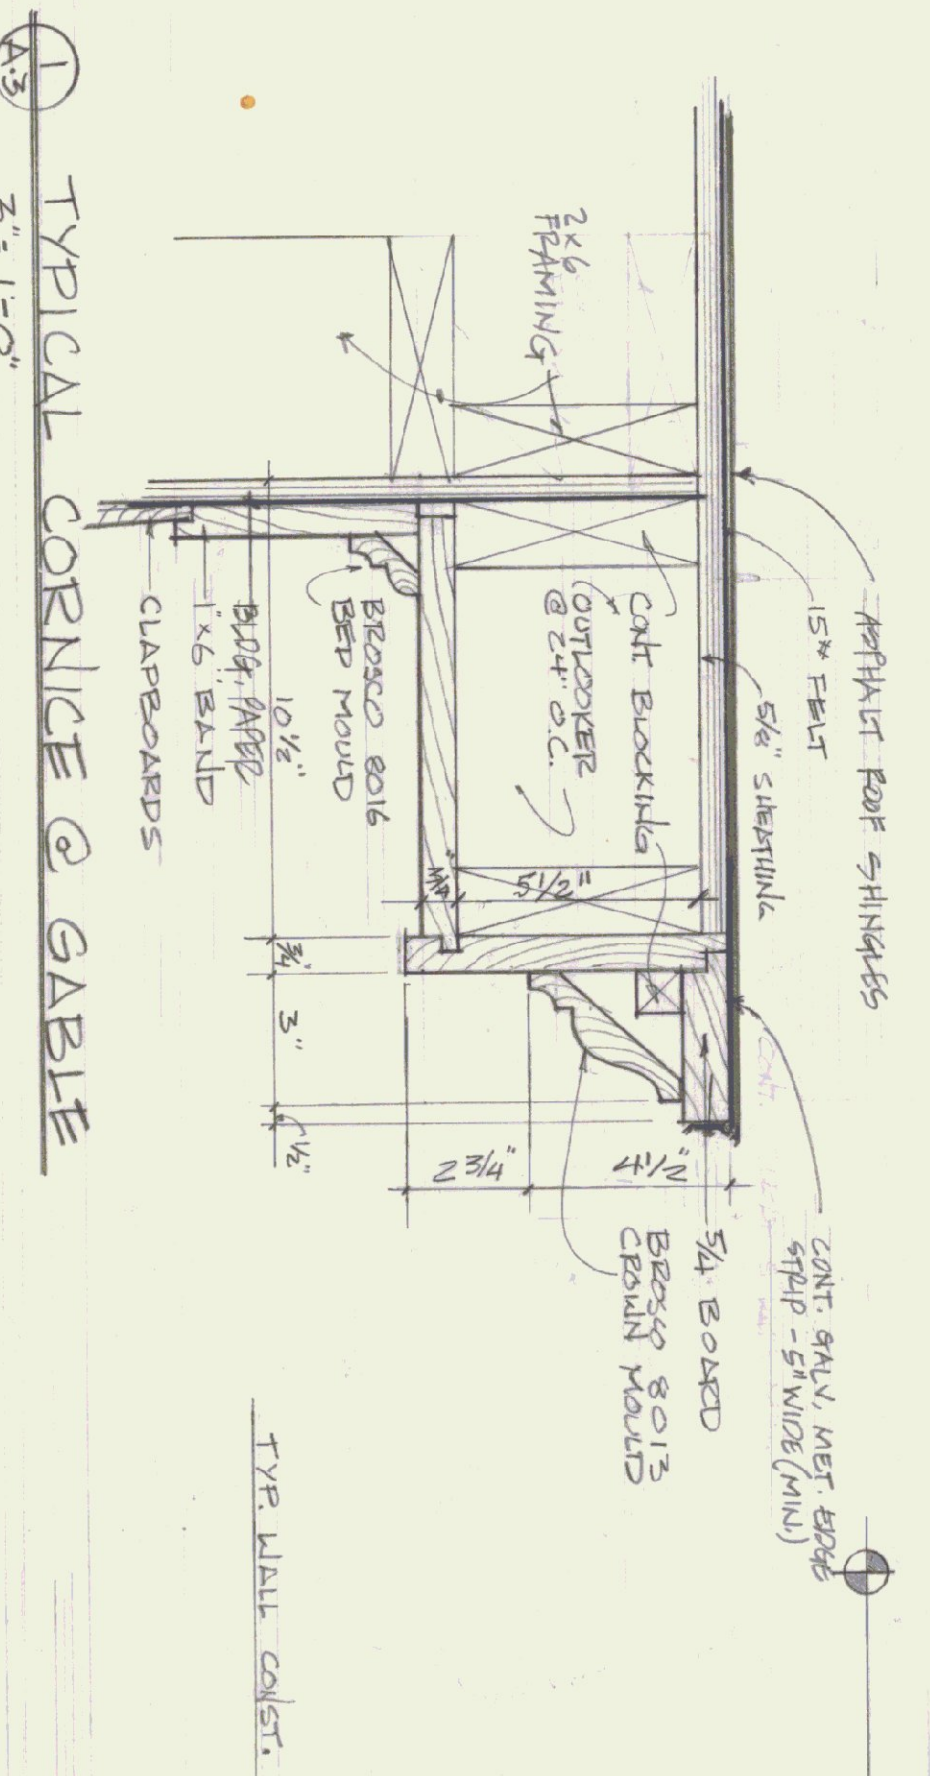 ASPHALT ROOF SHINGLES
15# FELT
5/8" SHEATHING
CONT. GALV. MET. EDGE
STRIP - 5" WIDE (MIN.)
2x6
FRAMING
CONT. BLOCKING
OUTLOOKER
@ 24" O.C.
5 1/2"
4 1/2"
2 3/4"
5/4 BOARD
BROSCO 8013
CROWN MOULD
BROSCO 8016
BED MOULD
BLDG. PAPER
1"x6" BAND
CLAPBOARDS
10 1/2"
3/4"
3"
1/2"
TYP. WALL CONST.
1
A.3
TYPICAL CORNICE @ GABLE
3" = 1'-0"